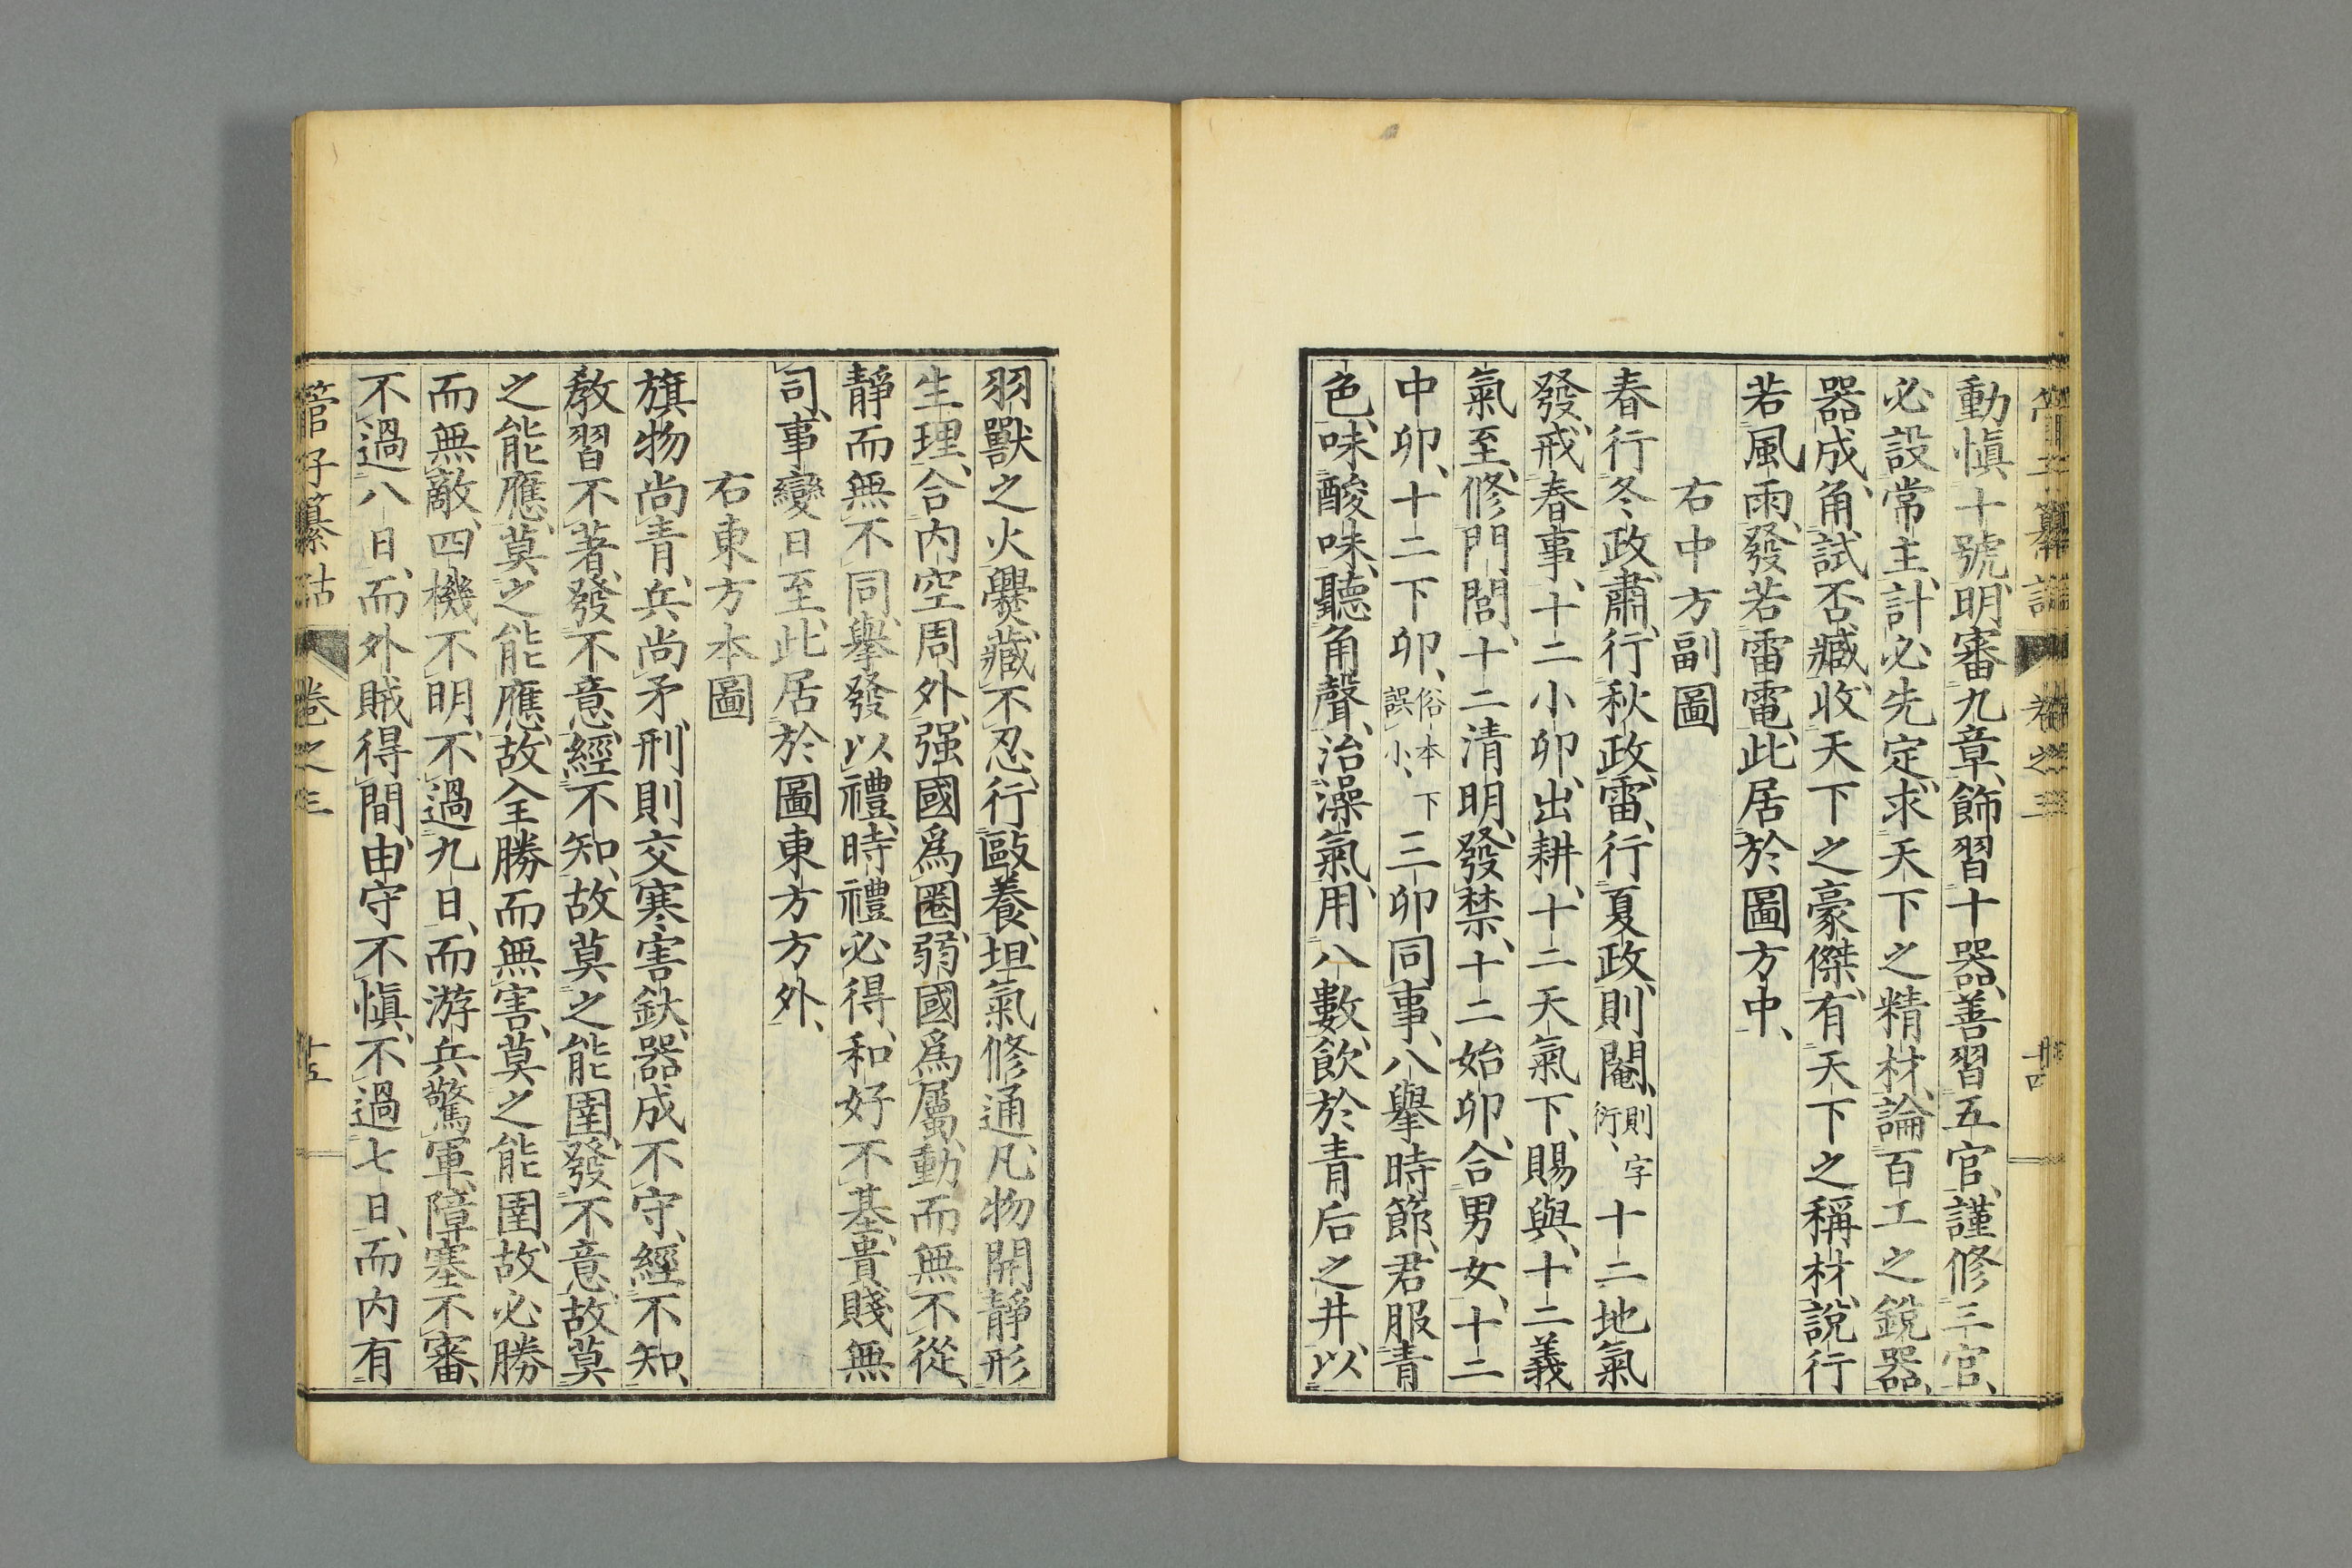 動愼十號、明審九章、飾習十器、善習五官、謹修三官、
必設常主、計必先定、求天下之精材、論百工之銳器、
器成、角試否臧、收天下之豪傑、有天下之稱材、說行
若風雨、發若雷電、此居於圖方中、
右中方副圖
春行冬政、肅、行秋政、雷、行夏政、則閹、則字衍、十二地氣
發、戒春事、十二小卯、出耕、十二天氣下、賜與、十二義
氣至、修門閭、十二清明、發禁、十二始卯、合男女、十二
中卯、十二下卯、俗本下誤小、三卯同事、八擧時節、君服青
色、味酸味、聽角聲、治澡氣、用八數、飮於青后之井、以
羽獸之火爨、藏不忍、行敺養、坦氣修通、凡物開靜形
生理、合内空周外、强國爲圈、弱國爲屬、動而無不從、
靜而無不同、擧發以禮、時禮必得、和好不基、貴賤無
司、事變日至、此居於圖東方方外、
右東方本圖
旗物尚青、兵尚矛、刑則交寒害釱、器成不守、經不知、
敎習不著、發不意、經不知、故莫之能圉、發不意、故莫
之能應、莫之能應、故全勝而無害、莫之能圉、故必勝
而無敵、四機不明、不過九日、而游兵驚軍、障塞不審、
不過八日、而外賊得間、由守不愼、不過七日、而内有
管子纂詁 卷之三 十五